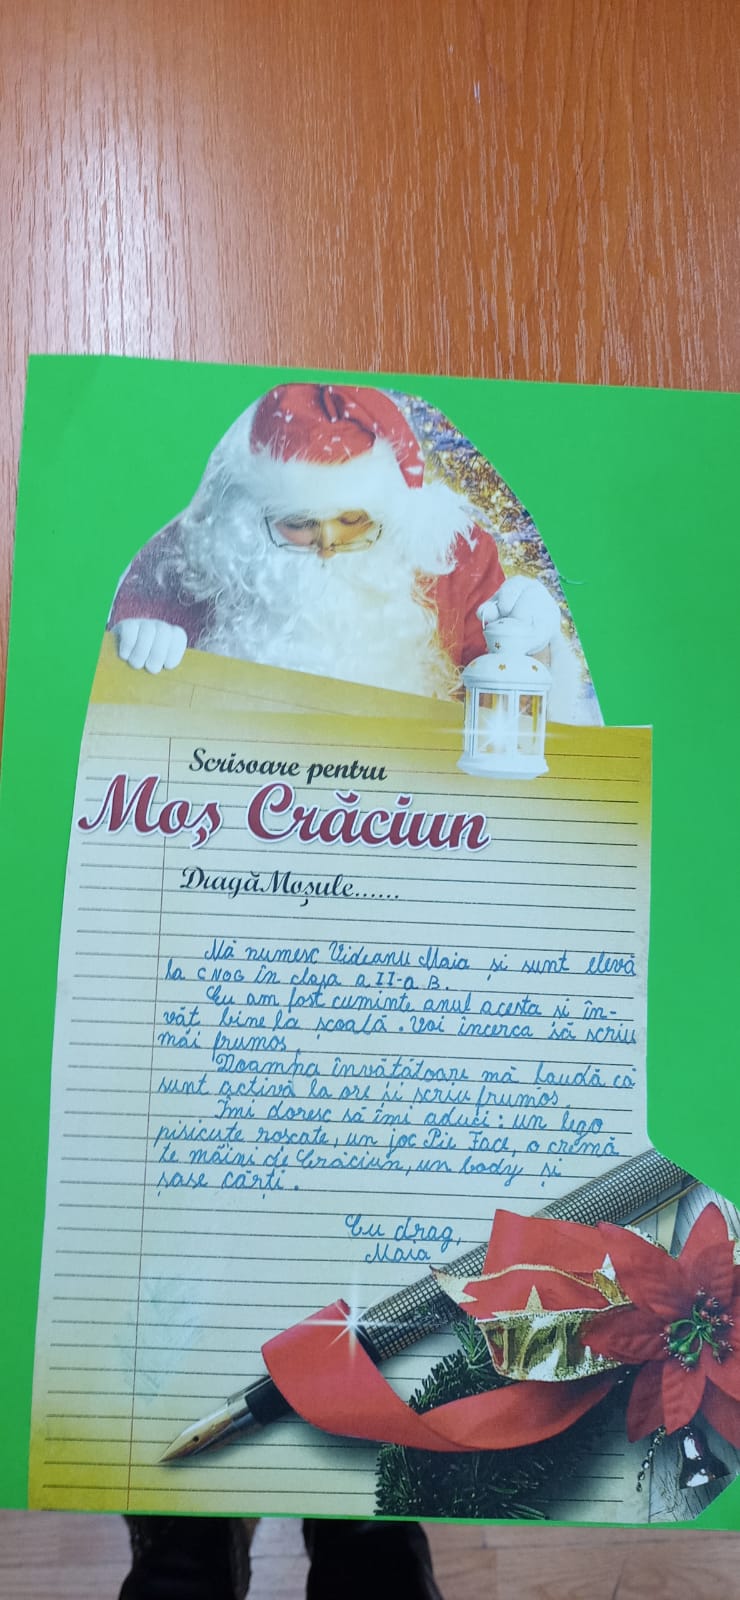 Scrisoare pentru
Moș Crăciun
Dragă Moșule......
Mă numesc Videanu Maia și sunt elevă
la CNOG în clasa a II-a B.
Eu am fost cuminte anul acesta si în-
văț bine la școală. Voi încerca să scriu
mai frumos.
Doamna învătătoare mă laudă că
sunt activă la ore și scriu frumos.
Îmi doresc să îmi aduci: un lego
pisicute roscate, un joc Pie Face, o cremă
te mâini de Crăciun, un body și
șase cărți.
Cu drag,
Maia